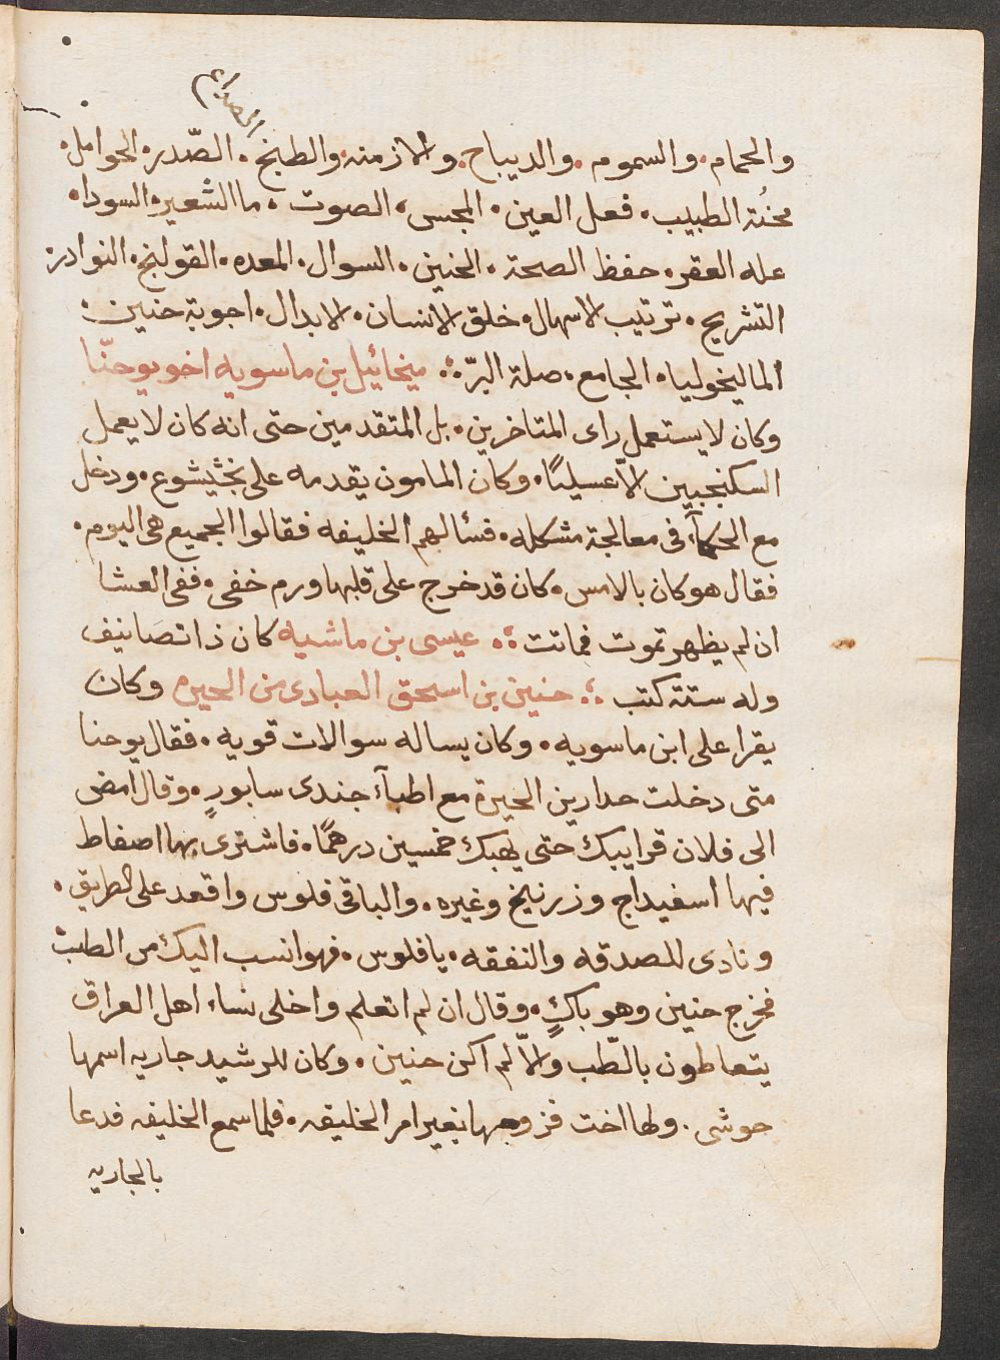 الصداع
والحمام. والسموم. والديباج. والازمنه. والطبخ. الصّدر. الحوامل.
محنُة الطبيب. فعل العين. المجسى. الصوت. ما الشعير. السودا.
عله العقر. حفظ الصحة. الجنين. السوال. المعده. القولنج. النوادر.
التشريح. ترتيب الاسهال. خلق الانسان. الابدال. اجوبة حنين.
الماليخوليا. الجامع. صلة البرّ. ميخائيل بن ماسويه اخو يوحنّا
وكان لا يستعمل راى المتاخرين. بل المتقدمين حتى انه كان لا يعمل
السكنجبين الاّ عسليًا. وكان المامون يقدمه على بختيشوع. ودخل
مع الحكمآء فى معالجة مشكله. فسئالهم الخليفه فقالوا الجميع هى اليوم.
فقال هو كان بالامس. كان قد خرج على قلبها ورم خفى. ففى العشا
ان لم يظهر تموت فماتت. عيسى بن ماشيه كان ذا تصانيف
وله ستة كتب. حنين بن اسحق العبادى من الحيره وكان
يقرا على ابن ماسويه. وكان يساله سوالات قويه. فقال يوحنا
متى دخلت حدارين الحيرة مع اطبآء جندى سابورٍ. وقال امض
الى فلان قرايبك حتى يهبك خمسين درهمًا. فاشترى بها اصفاط
فيها اسفيداج وزرنيخ وغيره. والباقى فلوس واقعد على الطريق.
ونادى للصدقه والنفقه. يا فلوس. فهو انسب اليك من الطبّ
فخرج حنين وهو باكٍ. وقال ان لم اتعلم واخلى نساء اهل العراق
يتعاطون بالطّب والاّ لم اكن حنين. وكان للرشيد جاريه اسمها
حوشى. ولها اخت فزوجها بغير امر الخليفه. فلما سمع الخليفه فدعا
بالجاريه